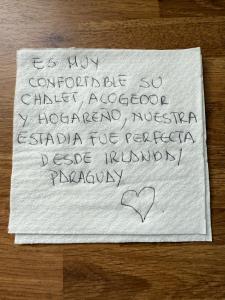 ES MUY
CONFORTABLE SU
CHALET, ACOGEDOR
Y HOGAREÑO, NUESTRA
ESTADIA FUE PERFECTA
DESDE IRLANDA/
PARAGUAY